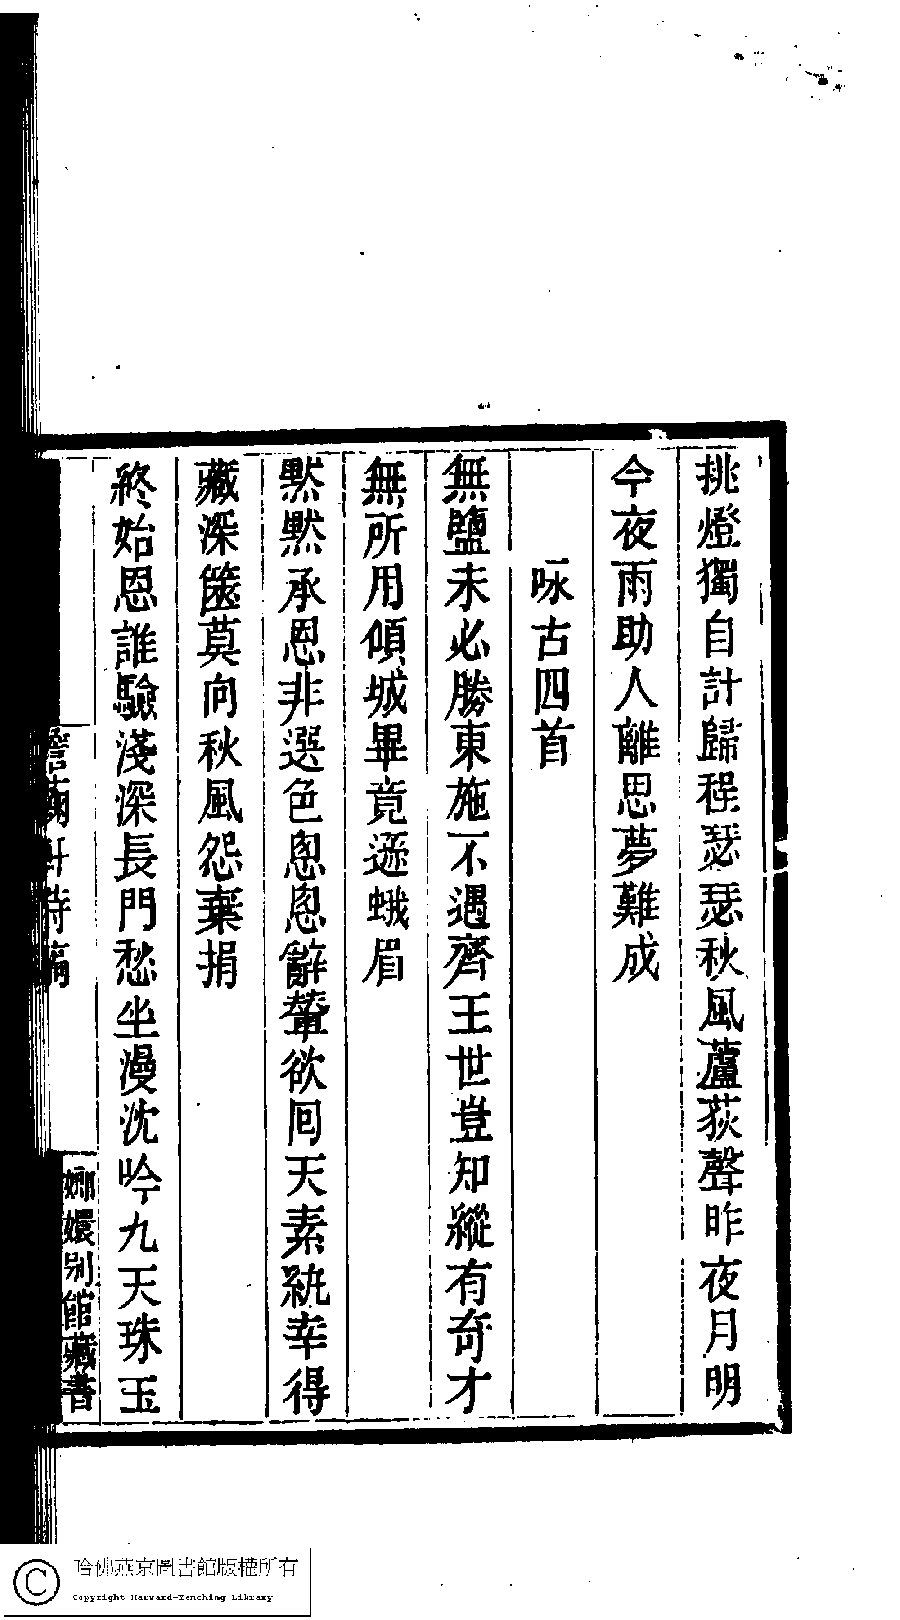 挑燈獨自計歸程瑟瑟秋風蘆荻聲昨夜月明
今夜雨助人離思夢難成
咏古四首
無鹽未必勝東施不遇齊王世豈知縱有奇才
無所用傾城畢竟遜蛾眉
默默承恩非選色恩恩辭輦欲囘天素紈幸得
藏深篋莫向秋風怨棄捐
終始恩誰驗淺深長門愁坐漫沈吟九天珠玉
嫏嬛別館藏書
哈佛燕京圖書館版權所有
Copyright Harvard-Yenching Library